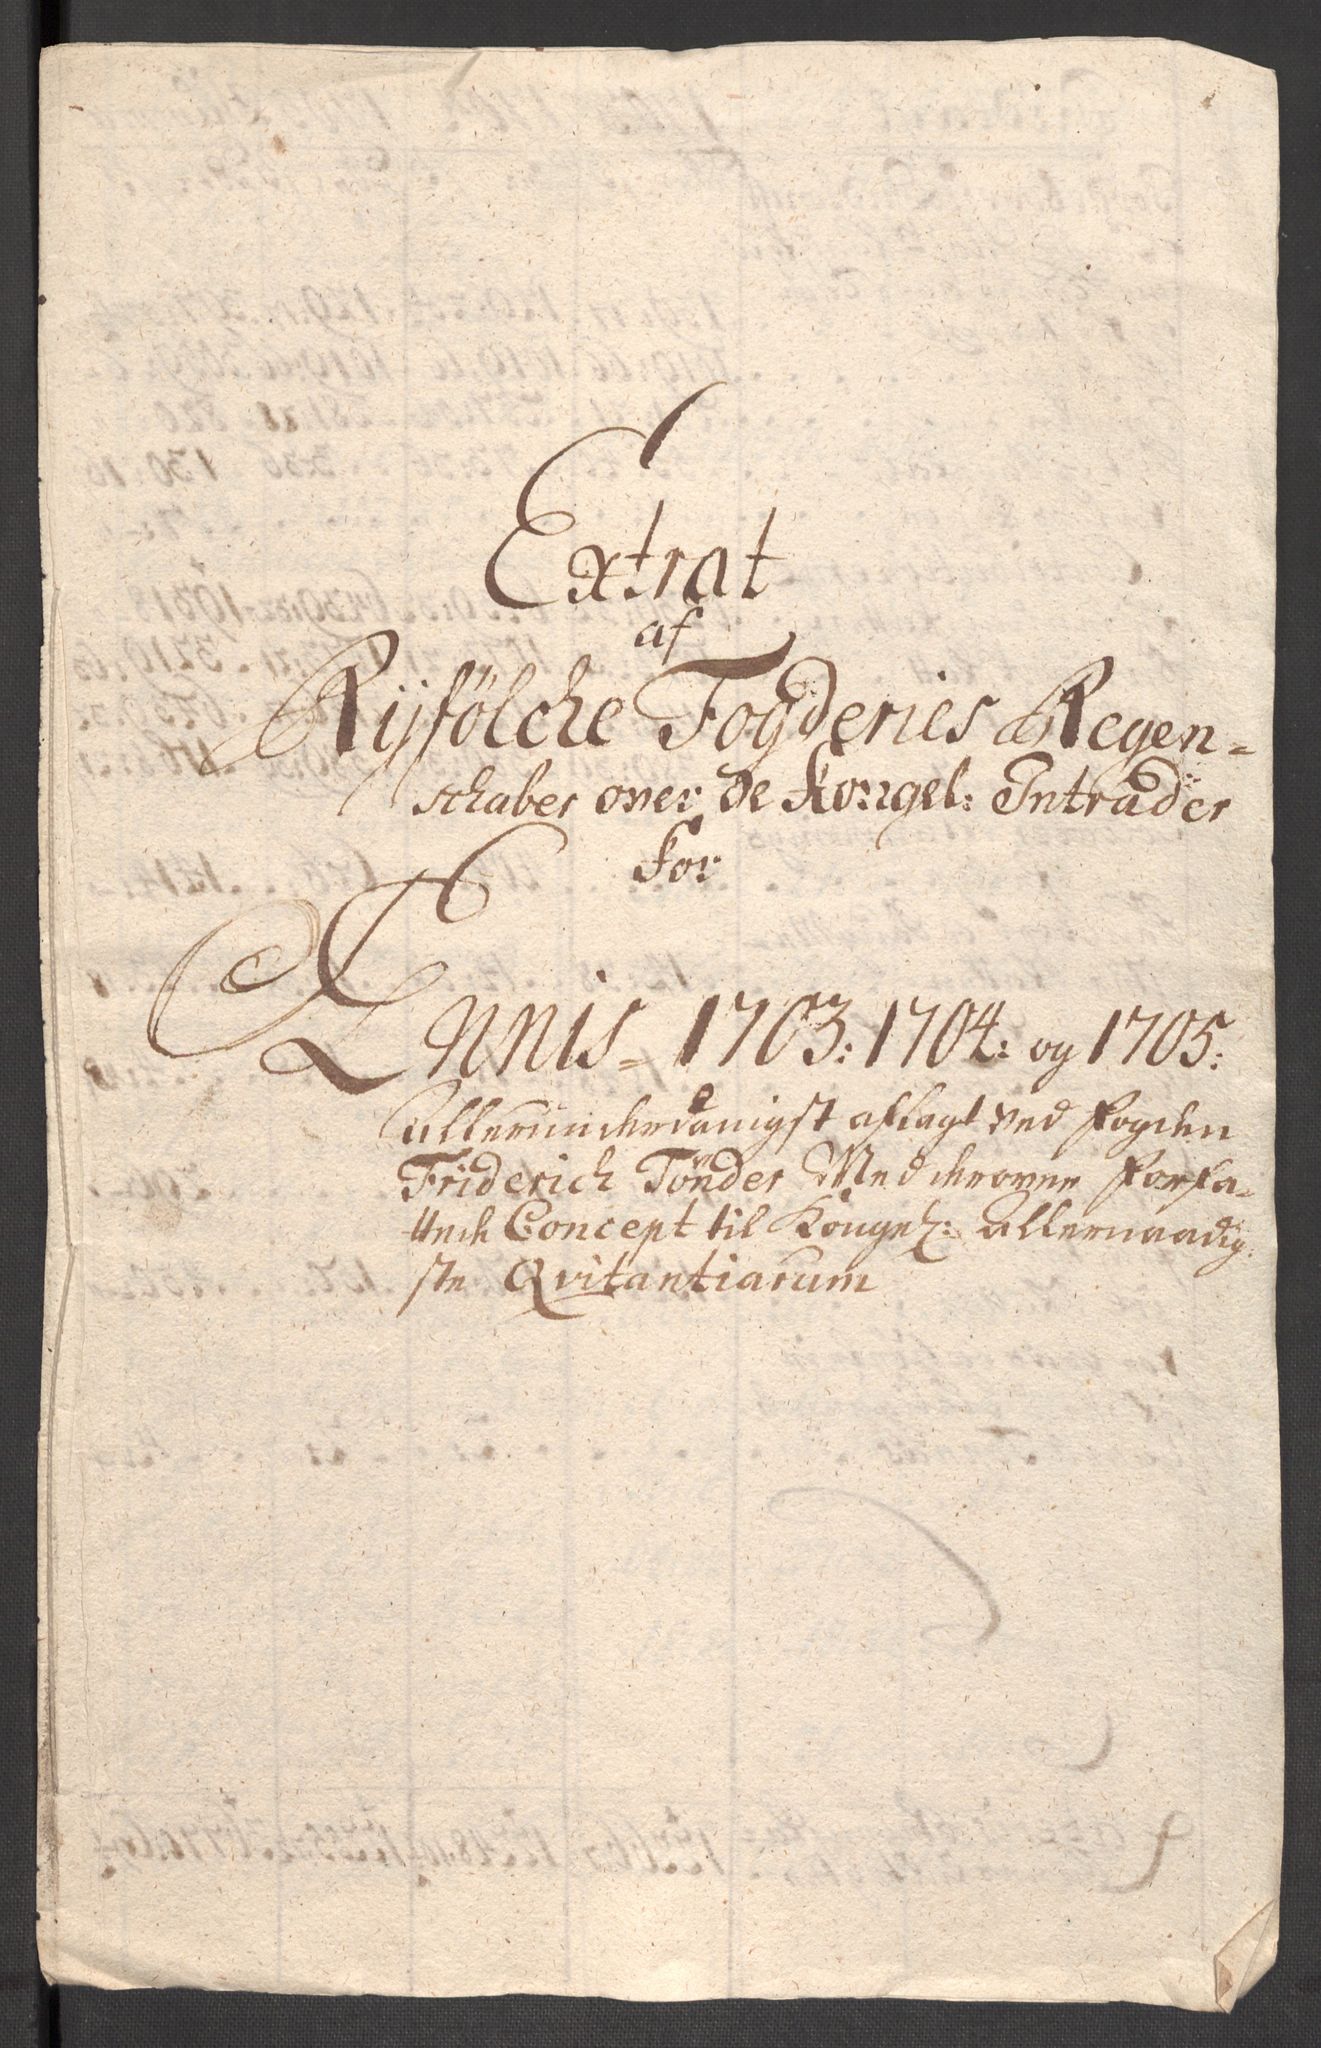 Extrat
af
Ryfölche Fogderies Regen=
schaber over de Kongel: Intrader
for
Annis 1703: 1704: og 1705:
allerunderdanigst aflagt ved fogden
Friderich Tönder Med herover forfa=
Concept til Kongel: allernaadig:
ste Qvitantiarum